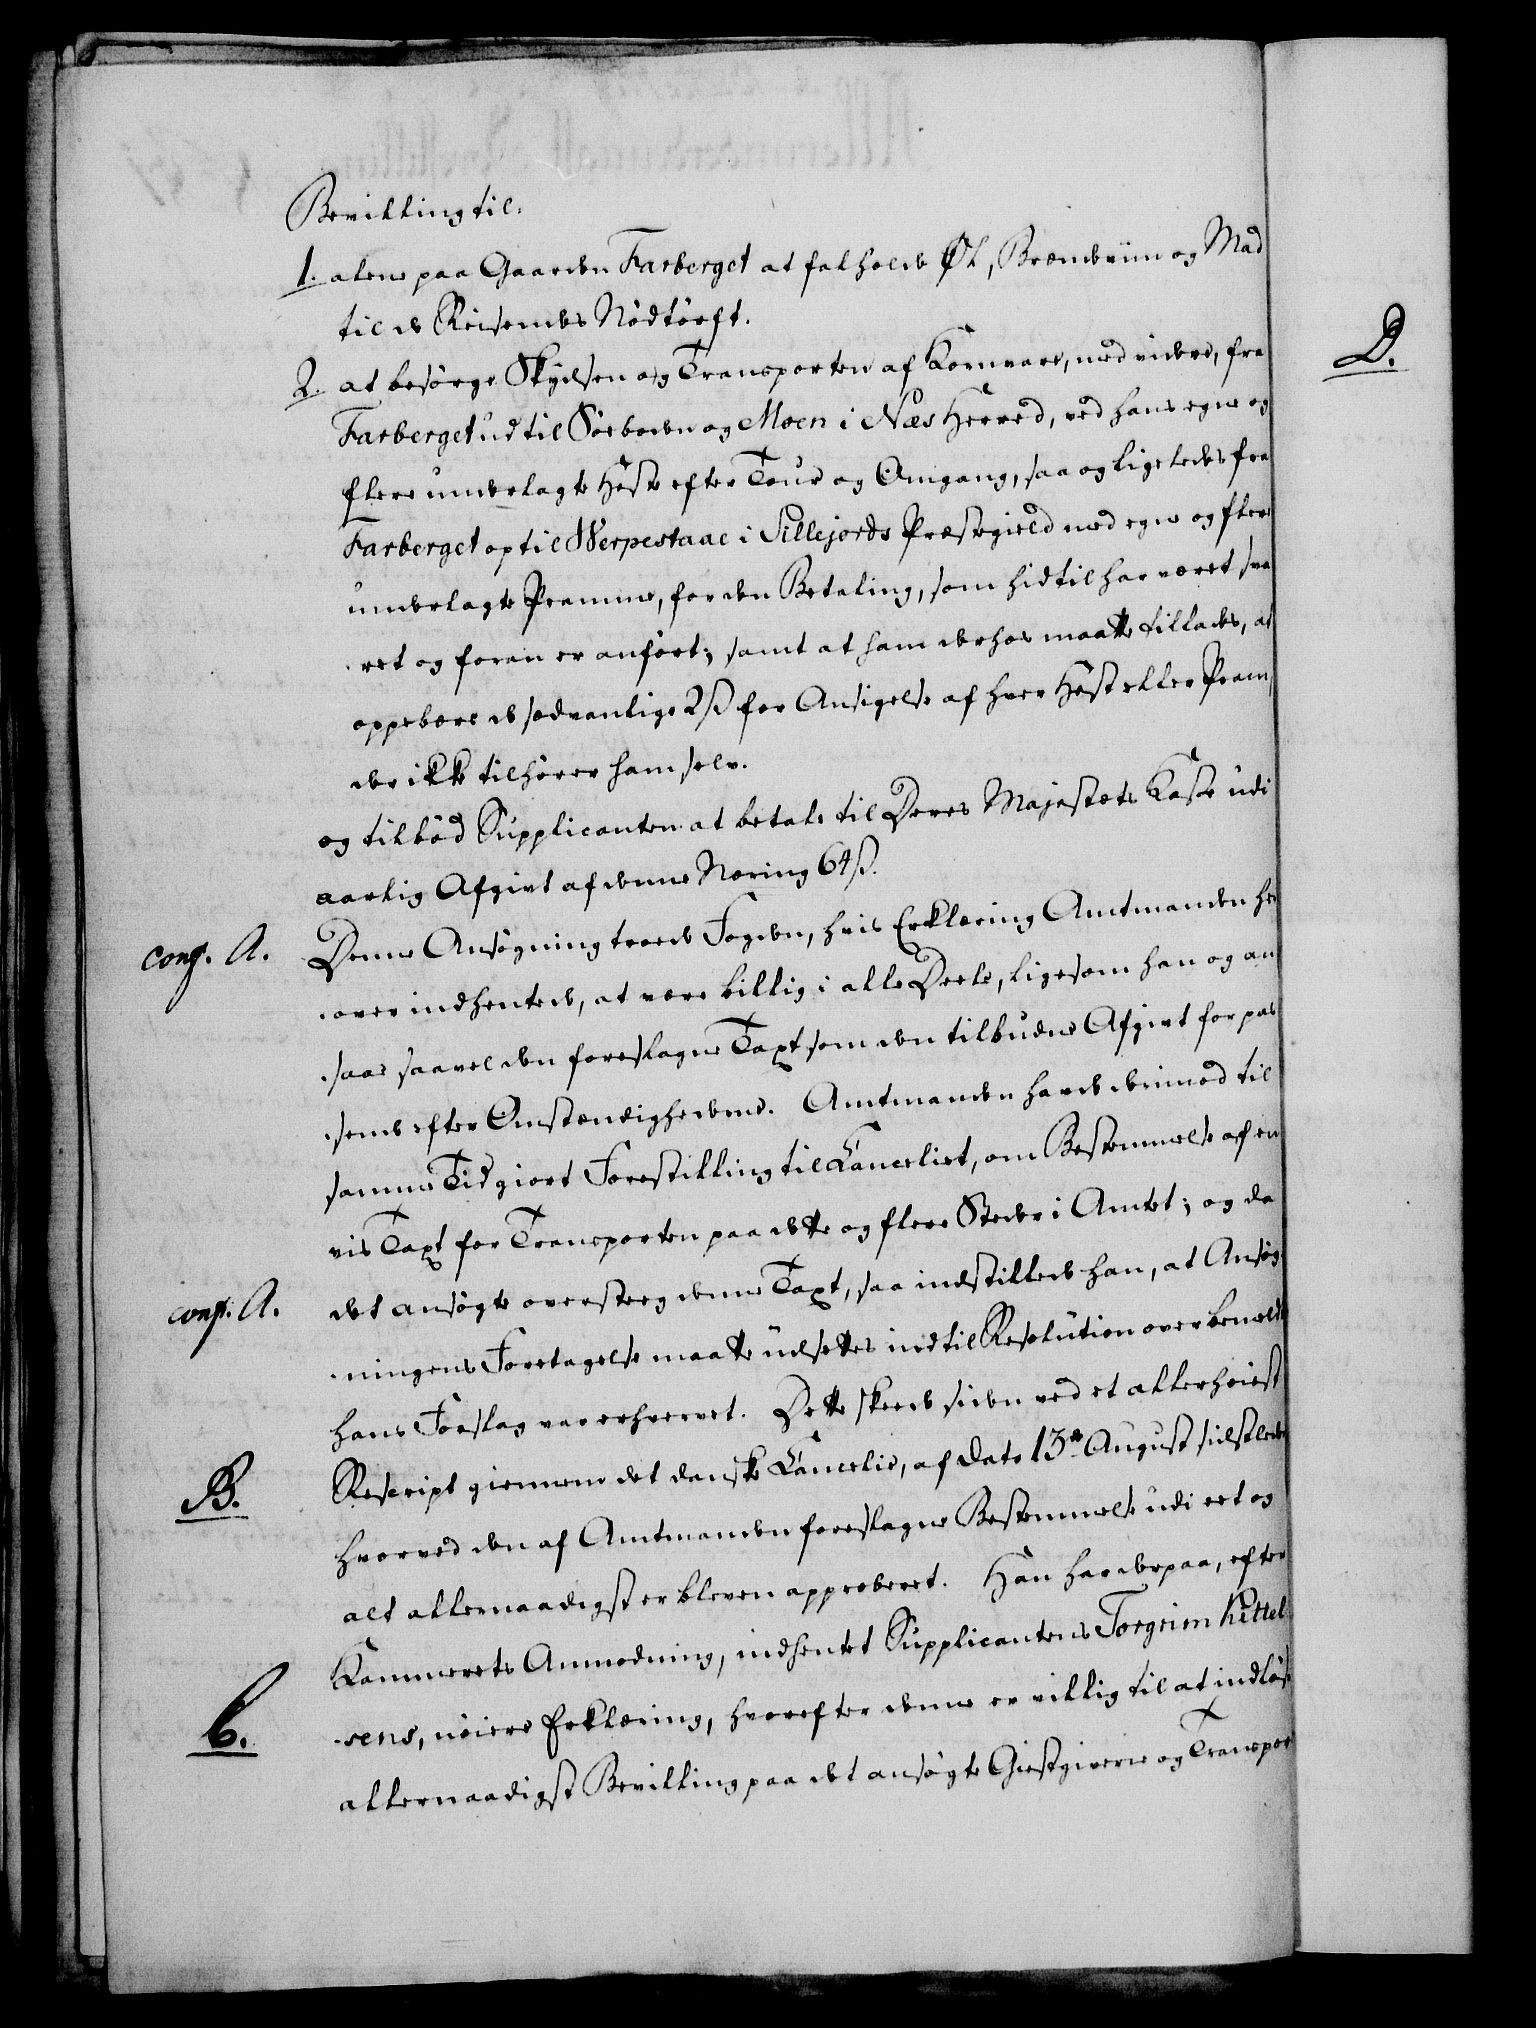 Bevilling til.
1. alene paa Gaarden Farberget at falholde Øl, Brændeviin og Mad
til de Reisendes Nødtørft.
D.
2. at besørge Skydsen og Transporten af Kornvare, med videre, fra
Farberget ud til Sørboden og Moen i Næs Herred, ved hans egne og
flere underlagte Heste efter Tour og Omgang, saa og ligeledes fra
Farberget op til Werpestaae i Sillejords Præstegield med egne og flere
underlagte Pramme, for den Betaling, som hidtil har været sva
ret og foran er anført; samt at ham derhos maatte tillades, at
oppebære de sædvanlige 2 ß for Ansigelse af hver Hest eller Pram,
der ikke tilhører ham selv.
og tilbød Supplicanten at betale til Deres Majestæts Kasse udi
aarlig Afgivt af denne Næring 64 ß.
conf. A. Denne Ansøgning troede Fogden, hvis Erklæring Amtmanden her
over indhentede, at være billig i alle Deele, ligesom han og an
saae saavel den foreslagne Taxt som den tilbudne Afgivt for pas
sende efter Omstændighederne. Amtmanden havde derimod til
samme Tid giort Forestilling til Cancelliet, om Bestemmelse af en
vis Taxt for Transporten paa dette og flere Steder i Amtet; og da
conf. A. det ansøgte oversteeg denne Taxt, saa indstillede han, at Ansøg
ningens Foretagelse maatte udsettes indtil Resolution over bemeldte
hans Forslag var erhvervet. Dette skeede siden ved et allerhøiest
B. Rescript giennem det danske Cancelie, af Dato 13de August sidstleden
hvorved den af Amtmanden foreslagne Bestemmelse udi eet og
alt allernaadigst er bleven approberet. Han har derpaa, efter
Kammerets Anmodning, indhentet Supplicantens Torgrim Kittel
C. sens, nøiere Erklæring, hvorefter denne er villig til at indløse
allernaadigst Bevilling paa det ansøgte Giestgiverie og Transport